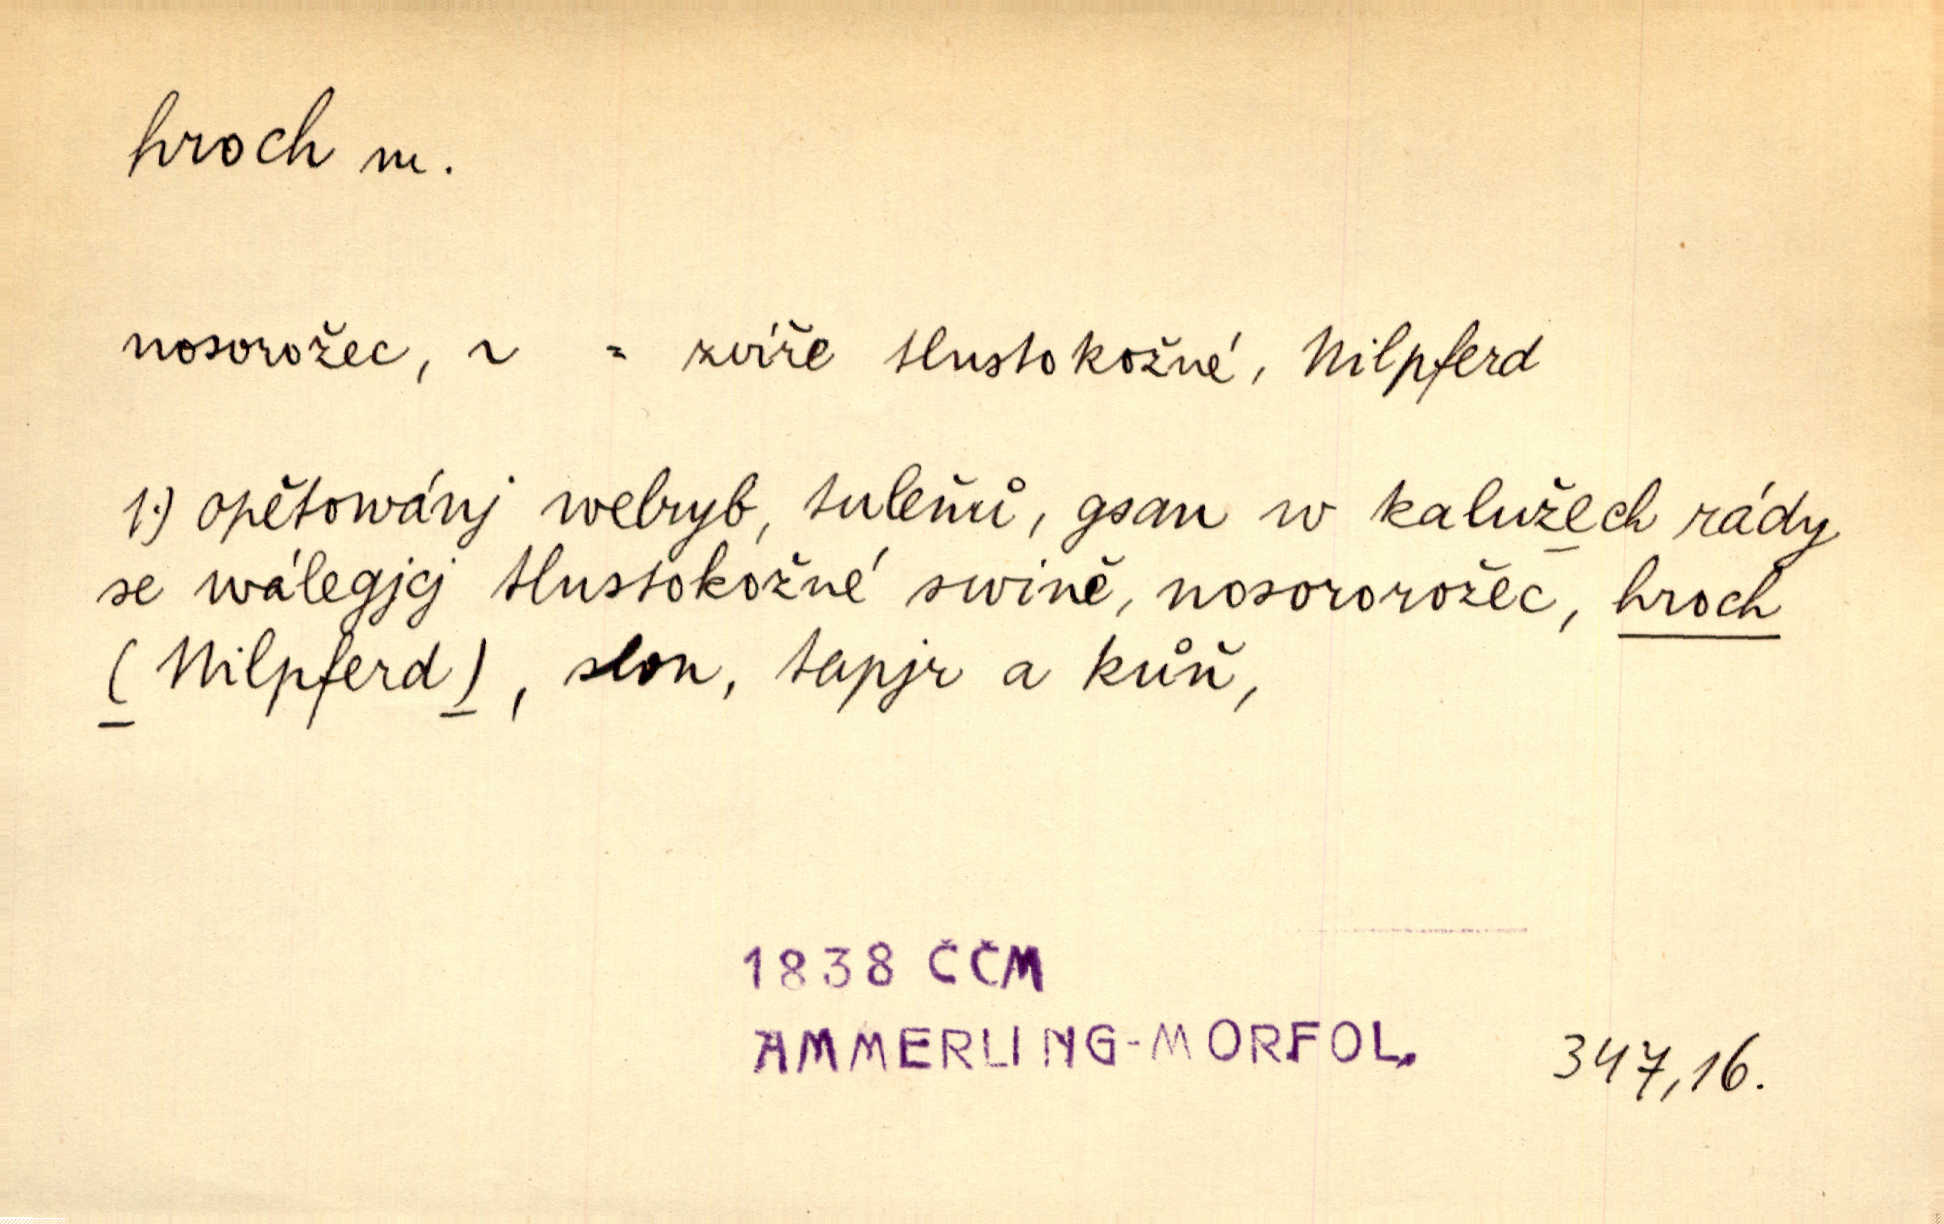 hroch m.
nosorožec, ~ = zvíře tlustokožné, Nilpferd
1.) opětowánj welryb, tuleňů, gsau w kalužech rády
se wálegjcj tlustokožné swině, nosororožec, hroch
(Nilpferd), slon, tapjr a kůň,
1838 ČČM
AMMERLING-MORFOL.
347,16.